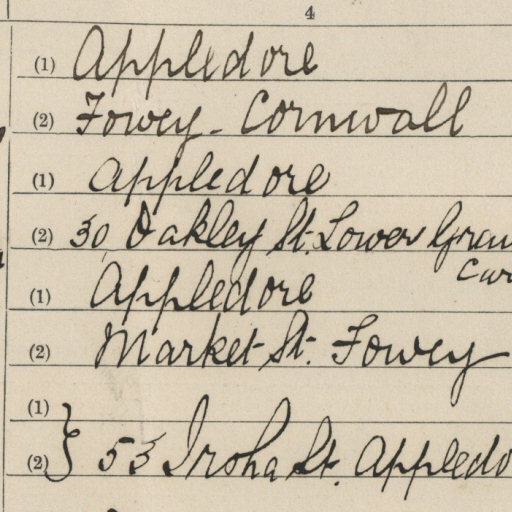 4
(1) Appledore
(2) Fowey - Cornwall
(1) Appledore
(2) 30 Oakley St. Lower
(1) Appledore
(2) Market St. Fowey
(1)
(2) } 53 Iroha St. Appledo